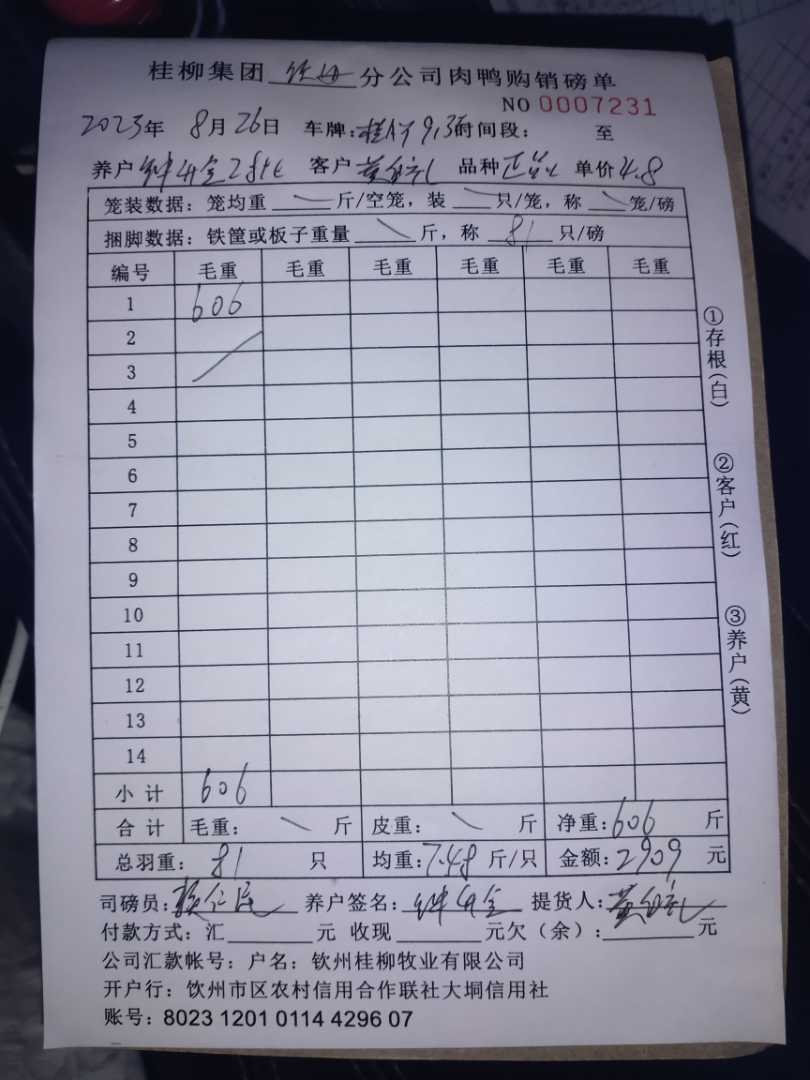 桂柳集团 钦州 分公司肉鸭购销磅单
NO 0007231
2023年 8月26日 车牌: 时间段: 至
养户 客户 品种 单价 4.8
笼装数据: 笼均重 斤/空笼, 装 只/笼, 称 笼/磅
捆脚数据: 铁筐或板子重量 斤, 称 81 只/磅
编号 毛重 毛重 毛重 毛重 毛重 毛重
1 606
2
3
4
5
6
7
8
9
10
11
12
13
14
小计 606
合计 毛重: 斤 皮重: 斤 净重: 606 斤
总羽重: 81 只 均重: 7.48 斤/只 金额: 2909 元
司磅员: 养户签名: 提货人:
付款方式: 汇 元 收现 元欠(余): 元
公司汇款帐号: 户名: 钦州桂柳牧业有限公司
开户行: 饮州市区农村信用合作联社大垌信用社
账号: 8023 1201 0114 4296 07
①存根(白)
②客户(红)
③养户(黄)